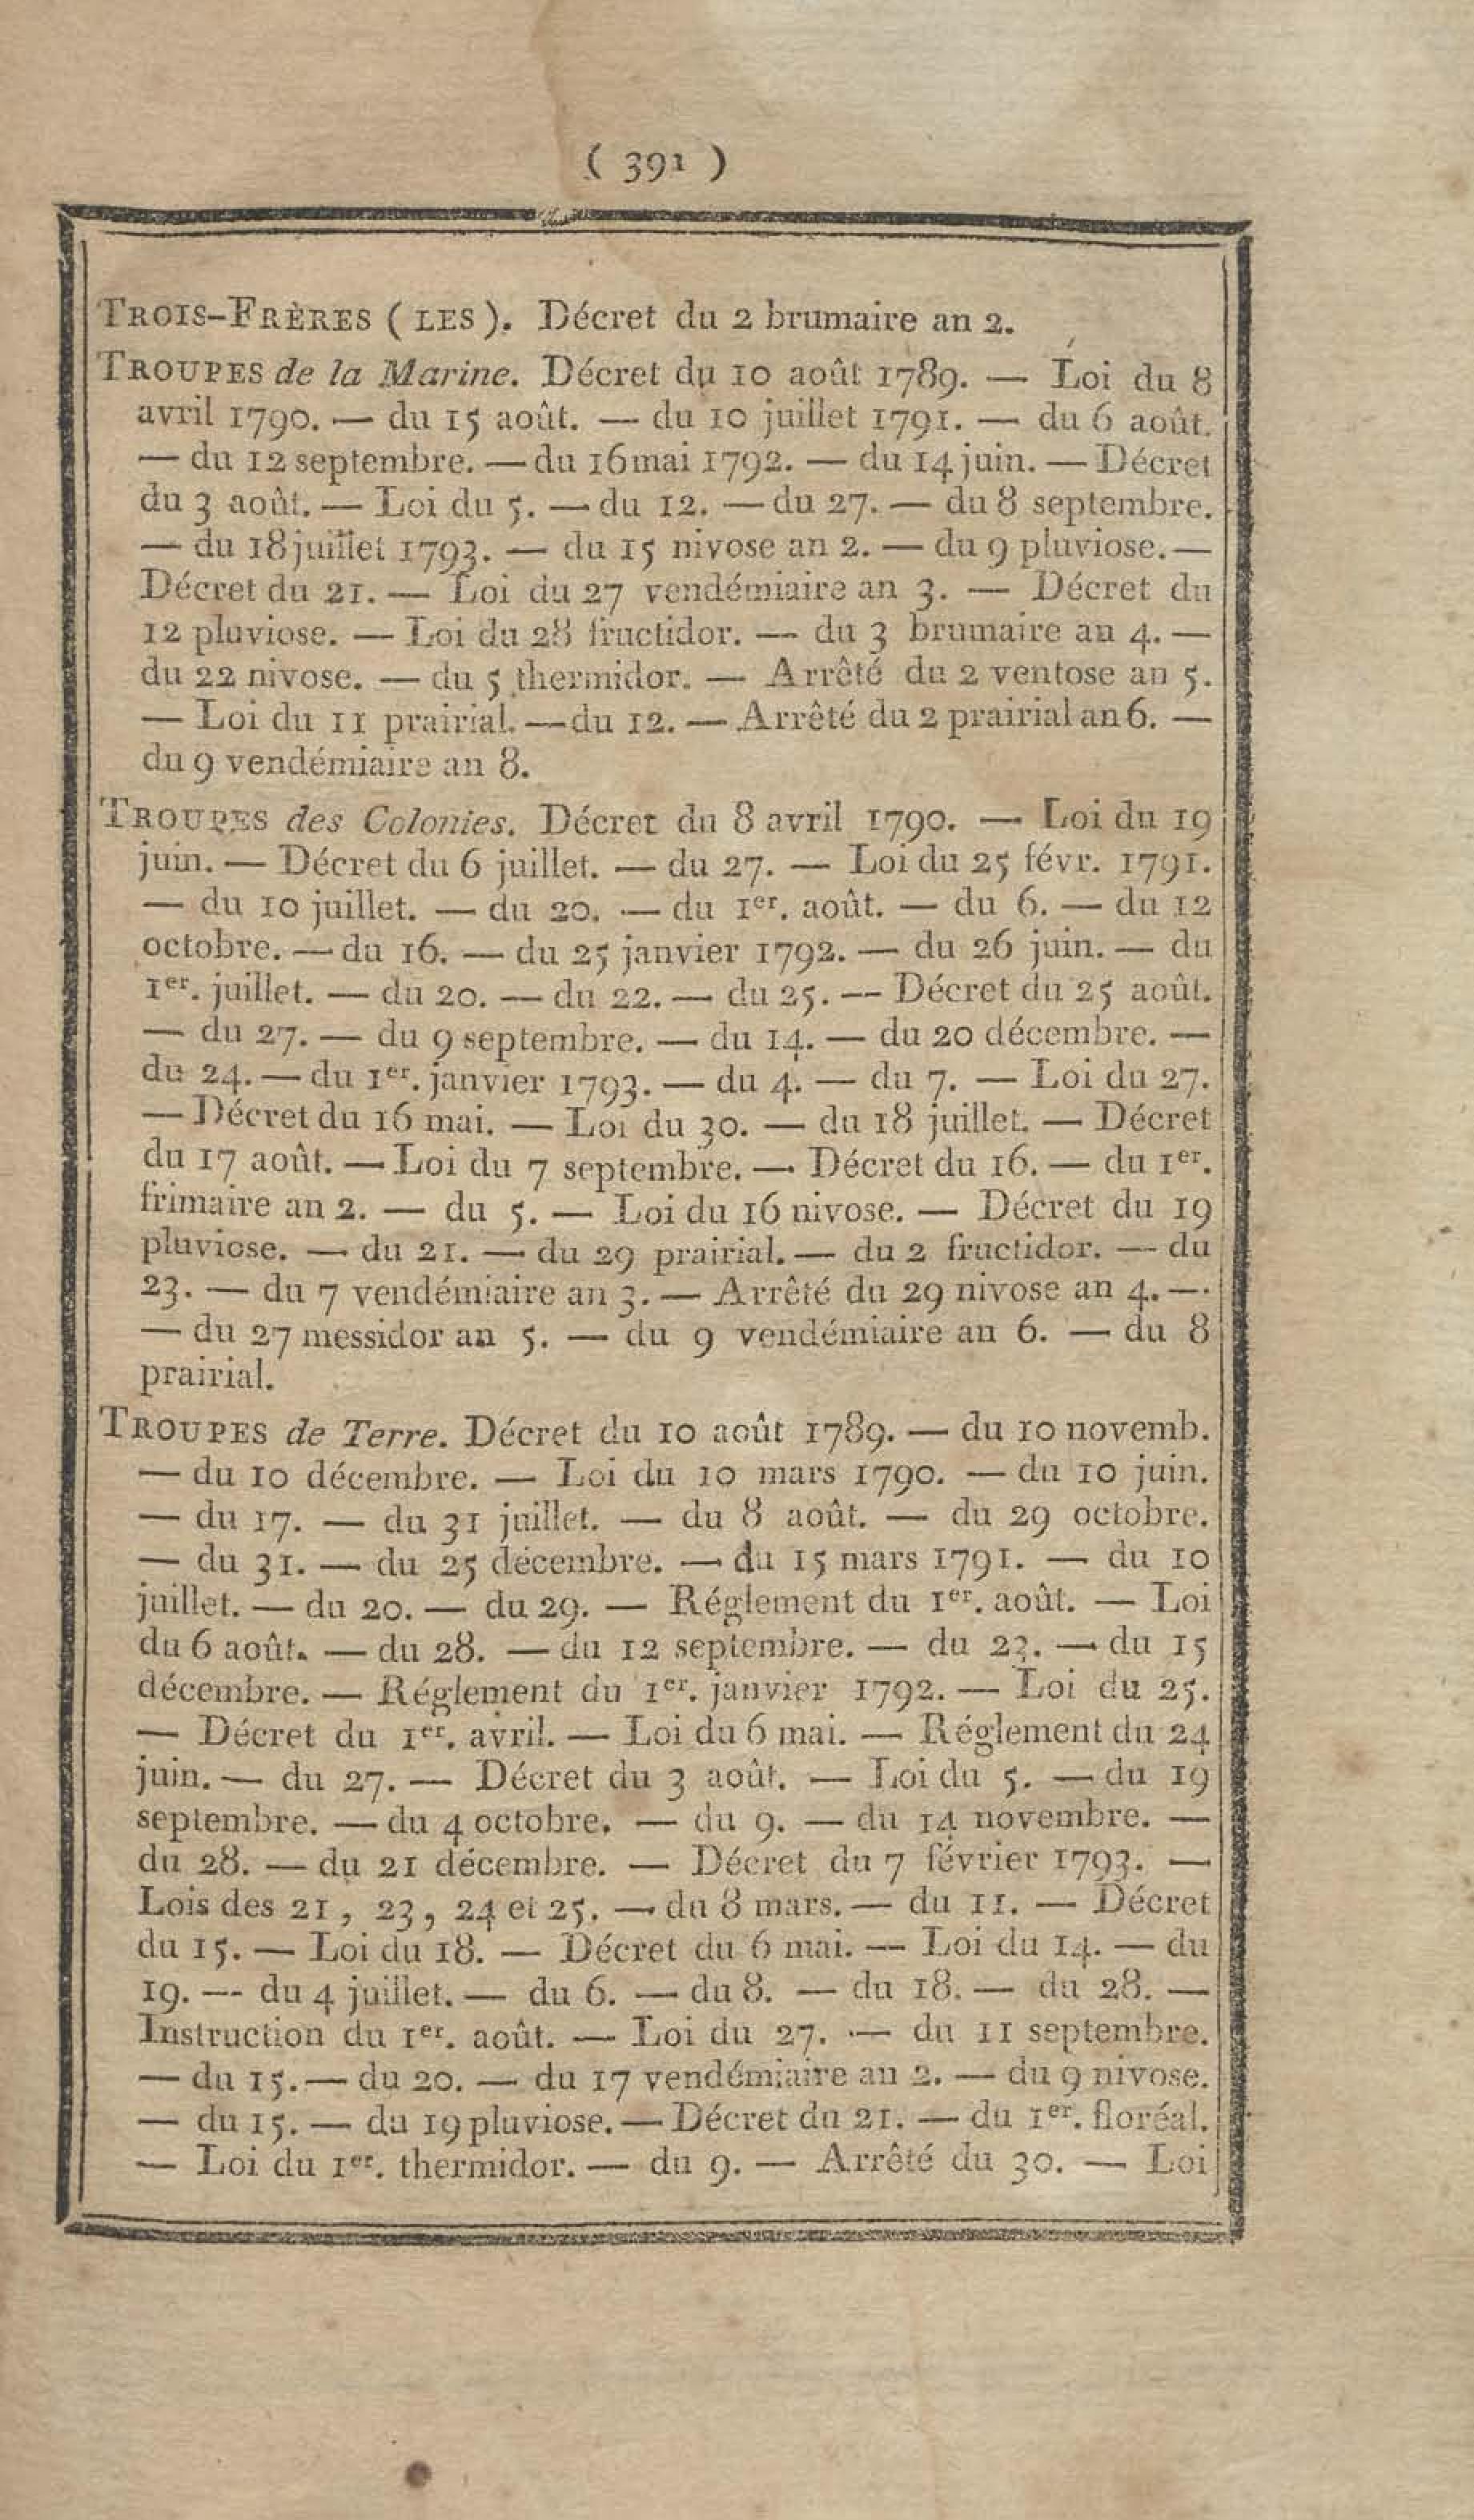 ( 391 )
TROIS-FRÈRES (LES). Décret du 2 brumaire an 2.
TROUPES de la Marine. Décret du 10 août 1789. — Loi du 8
avril 1790. — du 15 août. — du 10 juillet 1791. — du 6 août.
— du 12 septembre. — du 16 mai 1792. — du 14 juin. — Décret
du 3 août. — Loi du 5. — du 12. — du 27. — du 8 septembre.
— du 18 juillet 1793. — du 15 nivose an 2. — du 9 pluviose. —
Décret du 21. — Loi du 27 vendémiaire an 3. — Décret du
12 pluviose. — Loi du 28 fructidor. — du 3 brumaire an 4. —
du 22 nivose. — du 5 thermidor. — Arrêté du 2 ventose an 5.
— Loi du 11 prairial. — du 12. — Arrêté du 2 prairial an 6. —
du 9 vendémiaire an 8.
TROUPES des Colonies. Décret du 8 avril 1790. — Loi du 19
juin. — Décret du 6 juillet. — du 27. — Loi du 25 févr. 1791.
— du 10 juillet. — du 20. — du 1er. août. — du 6. — du 12
octobre. — du 16. — du 25 janvier 1792. — du 26 juin. — du
1er. juillet. — du 20. — du 22. — du 25. — Décret du 25 août.
— du 27. — du 9 septembre. — du 14. — du 20 décembre. —
du 24. — du 1er. janvier 1793. — du 4. — du 7. — Loi du 27.
— Décret du 16 mai. — Loi du 30. — du 18 juillet. — Décret
du 17 août. — Loi du 7 septembre. — Décret du 16. — du 1er.
frimaire an 2. — du 5. — Loi du 16 nivose. — Décret du 19
pluviose. — du 21. — du 29 prairial. — du 2 fructidor. — du
23. — du 7 vendémiaire an 3. — Arrêté du 29 nivose an 4. —
— du 27 messidor an 5. — du 9 vendémiaire an 6. — du 8
prairial.
TROUPES de Terre. Décret du 10 août 1789. — du 10 novemb.
— du 10 décembre. — Loi du 10 mars 1790. — du 10 juin.
— du 17. — du 31 juillet. — du 8 août. — du 29 octobre.
— du 31. — du 25 décembre. — du 15 mars 1791. — du 10
juillet. — du 20. — du 29. — Réglement du 1er. août. — Loi
du 6 août. — du 28. — du 12 septembre. — du 22. — du 15
décembre. — Réglement du 1er. janvier 1792. — Loi du 25.
— Décret du 1er. avril. — Loi du 6 mai. — Réglement du 24
juin. — du 27. — Décret du 3 août. — Loi du 5. — du 19
septembre. — du 4 octobre. — du 9. — du 14 novembre. —
du 28. — du 21 décembre. — Décret du 7 février 1793. —
Lois des 21, 23, 24 et 25. — du 8 mars. — du 11. — Décret
du 15. — Loi du 18. — Décret du 6 mai. — Loi du 14. — du
19. — du 4 juillet. — du 6. — du 8. — du 18. — du 28. —
Instruction du 1er. août. — Loi du 27. — du 11 septembre.
— du 15. — du 20. — du 17 vendémiaire an 2. — du 9 nivose.
— du 15. — du 19 pluviose. — Décret du 21. — du 1er. floréal.
— Loi du 1er. thermidor. — du 9. — Arrêté du 30. — Loi